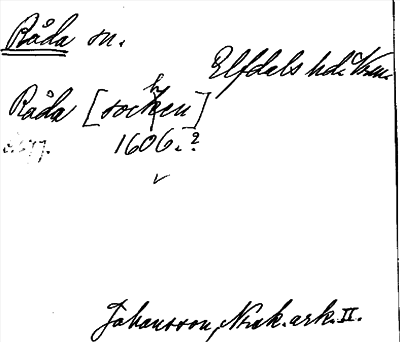 Råda sn.
Elfdals hd. Vrm.
Råda [socken]
1606.?
Johansson, Nork. ark. II.